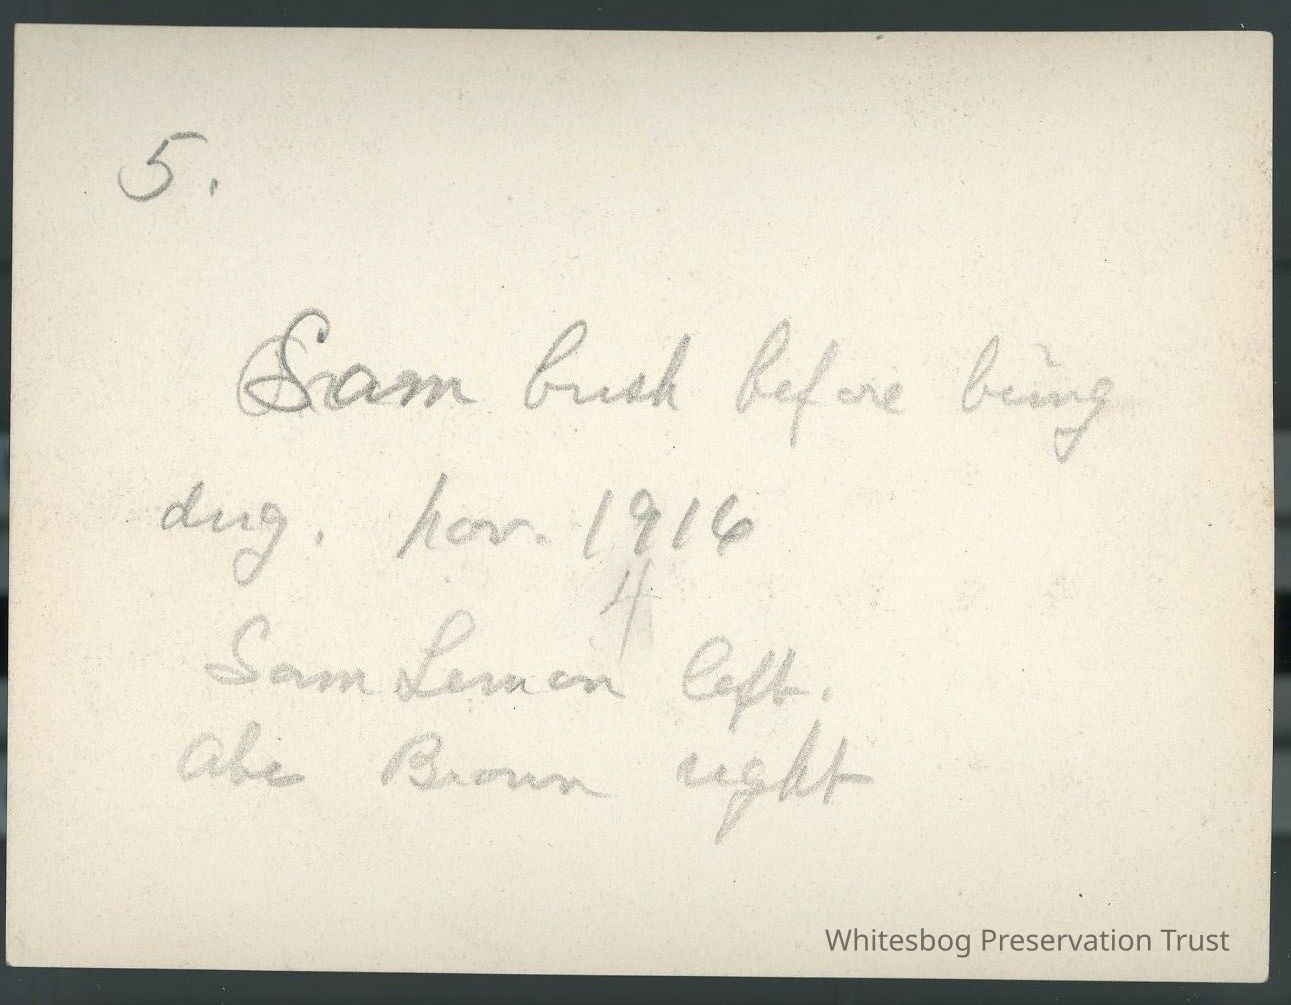 5.
Sam bush before being
dug. Nov. 1916
4
Sam Lemon left.
Abe Brown right
Whitesbog Preservation Trust